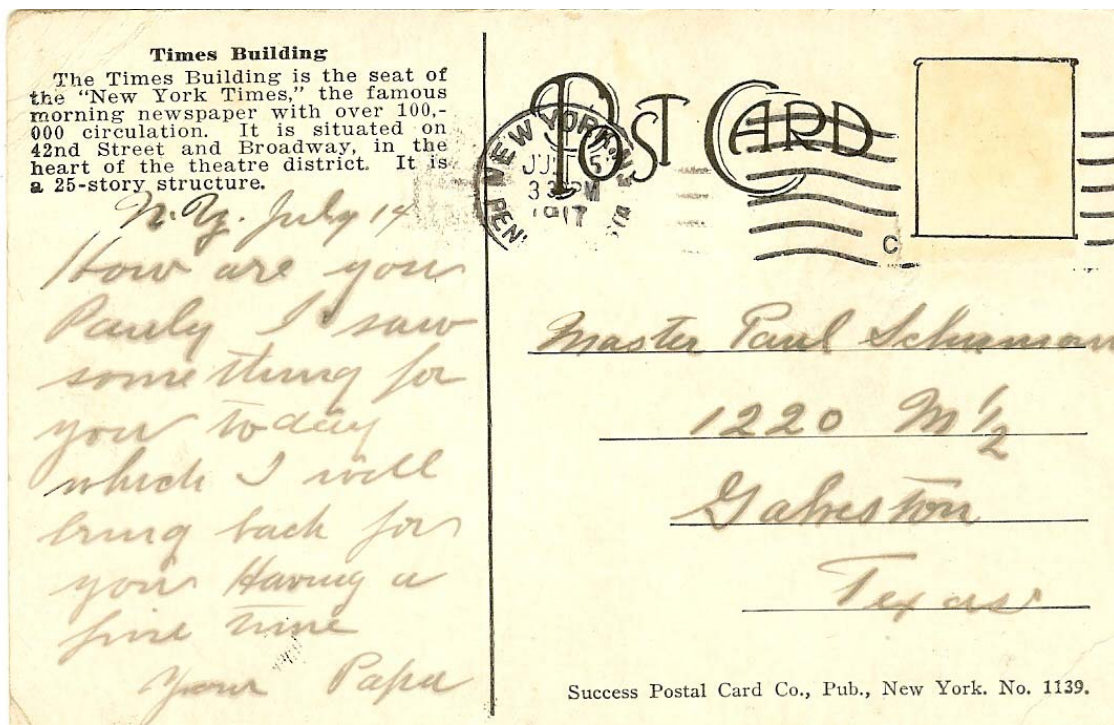 Times Building
The Times Building is the seat of
the "New York Times," the famous
morning newspaper with over 100,-
000 circulation. It is situated on
42nd Street and Broadway, in the
heart of the theatre district. It is
a 25-story structure.
N.Y. July 14
How are you
Pauly I saw
something for
you today
which I will
bring back for
you Having a
fine time
Your Papa
POST CARD
NEW YORK, N.Y.
PM
1917
PENN
C
Master Paul Schuman
1220 M 1/2
Galveston
Texas
Success Postal Card Co., Pub., New York. No. 1139.